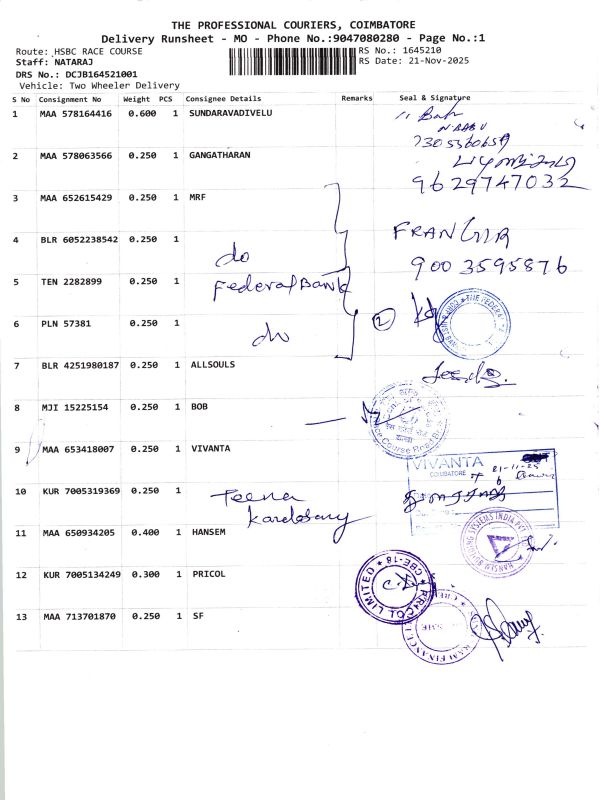 THE PROFESSIONAL COURIERS, COIMBATORE
Delivery Runsheet - MO - Phone No.:9047080280 - Page No.:1
Route: HSBC RACE COURSE
RS No.: 1645210
Staff: NATARAJ
RS Date: 21-Nov-2025
DRS No.: DCJB164521001
Vehicle: Two Wheeler Delivery
S No Consignment No Weight PCS Consignee Details Remarks Seal & Signature
1 MAA 578164416 0.600 1 SUNDARAVADIVELU
N. BABU
7305560659
2 MAA 578063566 0.250 1 GANGATHARAN
9629747032
3 MAA 652615429 0.250 1 MRF
4 BLR 6052238542 0.250 1
do
9003595876
5 TEN 2282899 0.250 1
Federal Bank
6 PLN 57381 0.250 1
do
2
THE FEDERAL
7 BLR 4251980187 0.250 1 ALLSOULS
8 MJI 15225154 0.250 1 BOB
9 MAA 653418007 0.250 1 VIVANTA
VIVANTA
COIMBATORE
21-11-25
10 KUR 7005319369 0.250 1
Teena
11 MAA 650934205 0.400 1 HANSEM
12 KUR 7005134249 0.300 1 PRICOL
PRICOL LIMITED * CBE-18 *
13 MAA 713701870 0.250 1 SF